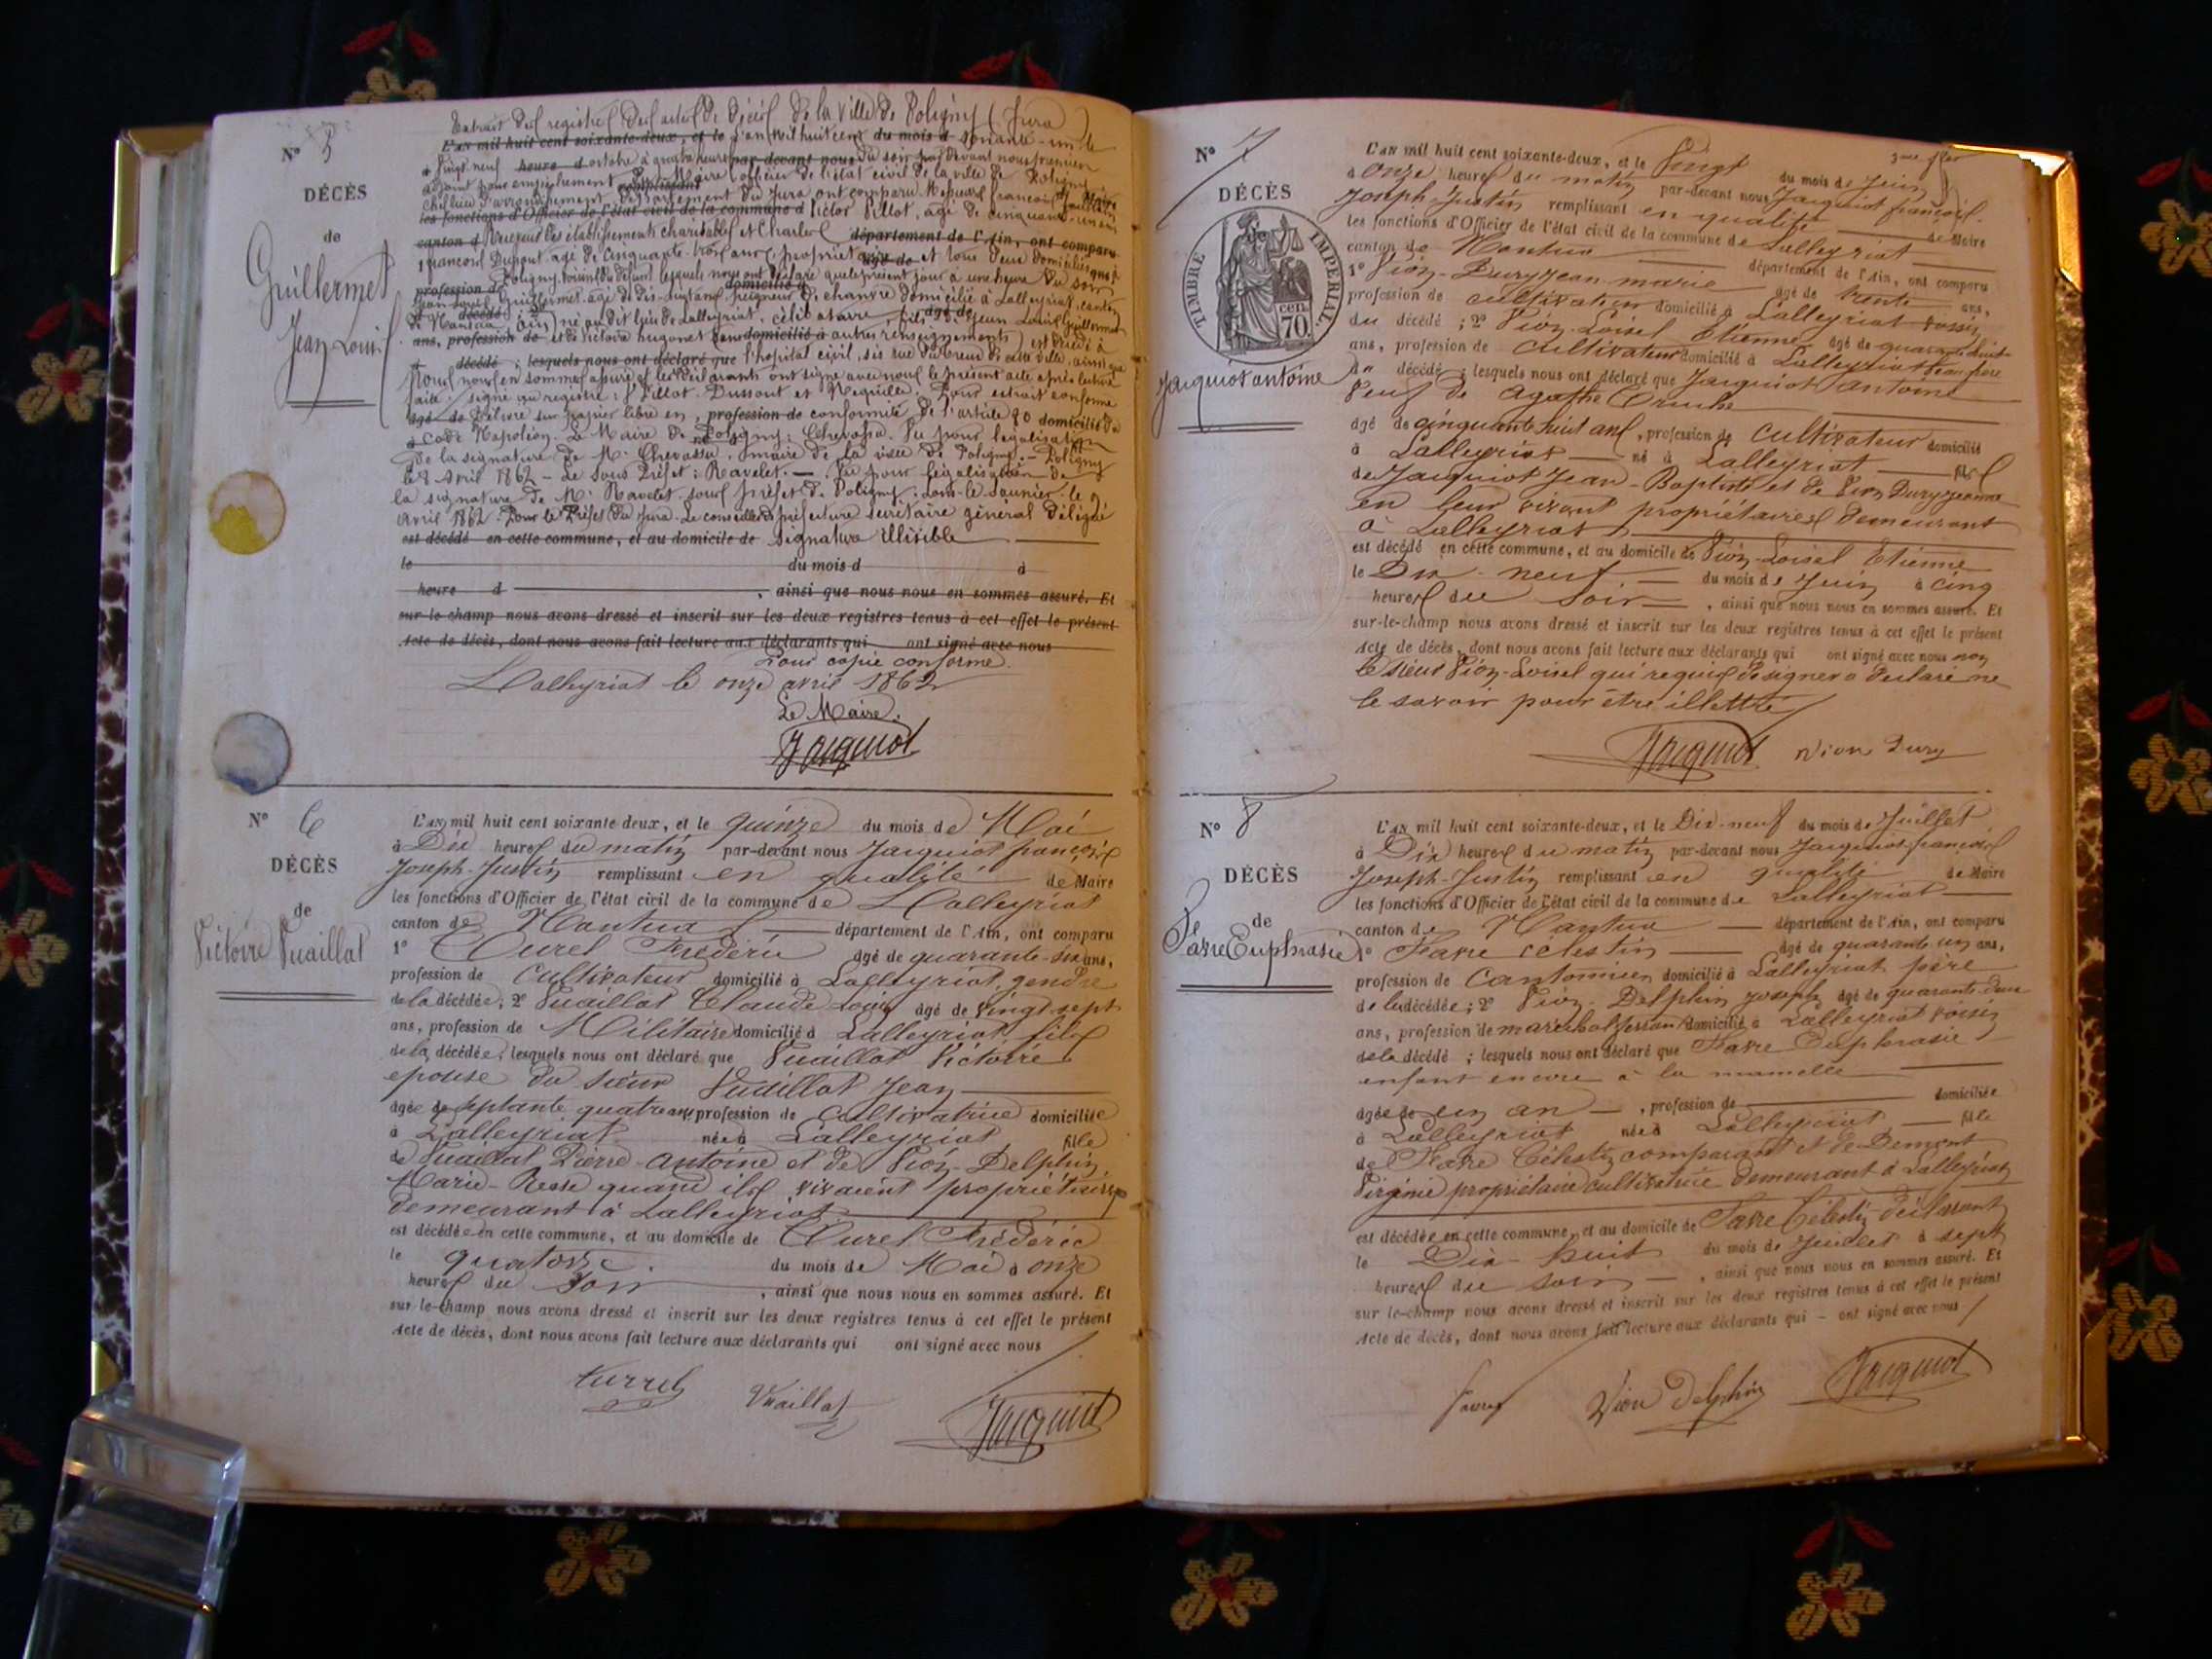 Extrait des registres des actes de décès de la Ville de Poligny (Jura)
N° 5
L'an mil huit cent soixante-deux, et le L'an mil huit cent du mois d soixante-un le
à vingt-neuf heure d octobre à quatre heures par-devant nous du soir par devant nous premier
adjoint pour empêchement du Maire officier de l'état civil de la ville de Poligny
DÉCÈS
de
Guillermet
Jean Louis
chef lieu d'arrondissement, département du Jura ont comparu Messieurs François
les fonctions d'Officier de l'état civil de la commune d Victor Pillot, âgé de cinquante-un ans
canton d Receveur des établissements charitables et Charles département de l'Ain, ont comparu
François Dupont âgé de cinquante-trois ans, propriétaire âgé de et tous deux domiciliés
profession de Poligny lesquels nous ont déclaré que le présent jour à une heure du soir
Jean Louis Guillermet âgé de dix-sept ans, peigneur de chanvre domicilié à Lalleyriat, canton
de Nantua (Ain) né au dit lieu de Lalleyriat, célibataire, fils de Jean Louis Guillermet
ans, profession de et de Victoire hugonet sans domicilié à autres renseignements) est décédé à
d décédé ; lesquels nous ont déclaré que l'hôpital civil, sis rue de cette ville, ainsi que
nous nous en sommes assuré et les déclarants ont signé avec nous le présent acte après lecture
faite, signé au registre : Pillot, Dussout et Regnille. Pour extrait conforme
âgé de Délivré sur papier libre en, profession de conformité de l'article 80 domicilié du
à Code Napoléon. Le Maire de Poligny : Chevassu. Vu pour légalisation
de la signature de M. Chevassu, maire de la ville de Poligny. - Poligny
le 8 Avril 1862 - Le Sous Préfet : Ravelet. — Vu pour légalisation de
la signature de M. Ravelet sous préfet de Poligny. Lons-le-Saunier le 9
avril 1862. Pour le Préfet du Jura. Le conseiller de préfecture secrétaire général délégué
est décédé en cette commune, et au domicile de signature illisible
le du mois d à
heure d , ainsi que nous nous en sommes assuré. Et
sur-le-champ nous avons dressé et inscrit sur les deux registres tenus à cet effet le présent
Acte de décès, dont nous avons fait lecture aux déclarants qui ont signé avec nous
Pour copie conforme.
Lalleyriat le onze avril 1862
Le Maire.
Jacquiot
N° 6
DÉCÈS
de
Victoire Vuaillat
L'AN mil huit cent soixante-deux, et le quinze du mois de Mai
à Dix heures du matin par-devant nous Jacquiot françois
Joseph-Justin remplissant en qualité de Maire
les fonctions d'Officier de l'état civil de la commune de Lalleyriat
canton de Nantua département de l'Ain, ont comparu
1° Curel Frédéric âgé de quarante-six ans,
profession de cultivateur domicilié à Lalleyriat, gendre
de la décédée; 2° Vuaillat Claude Louis âgé de vingt-sept
ans, profession de Militaire domicilié à Lalleyriat, fils
de la décédée; lesquels nous ont déclaré que Vuaillat Victoire
épouse du sieur Vuaillat Jean
âgée de septante quatre ans, profession de Cultivatrice domiciliée
à Lalleyriat née à Lalleyriat fille
de Vuaillat Pierre-Antoine et de Vion-Delphin,
Marie-Rose quand ils vivaient propriétaires
demeurant à Lalleyriat
est décédée en cette commune, et au domicile de Curel Frédéric
le quatorze du mois de Mai à onze
heures du soir , ainsi que nous nous en sommes assuré. Et
sur-le-champ nous avons dressé et inscrit sur les deux registres tenus à cet effet le présent
Acte de décès, dont nous avons fait lecture aux déclarants qui ont signé avec nous
Vuaillat
Jacquiot
N° 7
DÉCÈS
TIMBRE IMPÉRIAL
CEN. 70
Jacquiot antoine
L'AN mil huit cent soixante-deux, et le Vingt du mois de Juin
à onze heures du matin par-devant nous Jacquiot françois-
Joseph-Justin remplissant en qualité de Maire
les fonctions d'Officier de l'état civil de la commune de Lalleyriat
canton de Nantua département de l'Ain, ont comparu
1° Vion-Dury Jean-marie âgé de trente ans,
profession de cultivateur domicilié à Lalleyriat voisin
du décédé ; 2° Vion-Loisel Etienne âgé de quarante-huit-
ans, profession de cultivateur domicilié à Lalleyriat beau frère
du décédé ; lesquels nous ont déclaré que Jacquiot antoine
Veuf de Agathe
âgé de cinquante huit ans, profession de cultivateur domicilié
à Lalleyriat né à Lalleyriat fils
de Jacquiot Jean-Baptiste et de Vion Dury Jeanne
en leur vivant propriétaires demeurant
à Lalleyriat
est décédé en cette commune, et au domicile de Vion-Loisel Etienne
le Dix-neuf du mois de Juin à cinq
heures du soir , ainsi que nous nous en sommes assuré. Et
sur-le-champ nous avons dressé et inscrit sur les deux registres tenus à cet effet le présent
Acte de décès, dont nous avons fait lecture aux déclarants qui ont signé avec nous non
le sieur Vion-Loisel qui requis de signer a déclaré ne
le savoir pour être illettré
Jacquiot Vion Dury
N° 8
DÉCÈS
de
Favre Euphrasie
L'AN mil huit cent soixante-deux, et le Dix-neuf du mois de Juillet
à Dix heures du matin par-devant nous Jacquiot françois
Joseph-Justin remplissant en qualité de Maire
les fonctions d'Officier de l'état civil de la commune de Lalleyriat
canton de Nantua département de l'Ain, ont comparu
1° Favre Célestin âgé de quarante un ans,
profession de Cantonnier domicilié à Lalleyriat père
de la décédée ; 2° Vion-Delphin Joseph âgé de quarante-deux
ans, profession de maréchal ferrant domicilié à Lalleyriat voisin
de la décédé ; lesquels nous ont déclaré que Favre Euphrasie
enfant encore à la mamelle
âgée de un an , profession de domiciliée
à Lalleyriat née à Lalleyriat fille
de Favre Célestin comparant et de Demont
Virginie propriétaire cultivatrice demeurant à Lalleyriat
est décédée en cette commune, et au domicile de Favre Célestin déclarant
le Dix-huit du mois de Juillet à sept
heures du soir , ainsi que nous nous en sommes assuré. Et
sur-le-champ nous avons dressé et inscrit sur les deux registres tenus à cet effet le présent
Acte de décès, dont nous avons fait lecture aux déclarants qui – ont signé avec nous
Vion Delphin Jacquiot